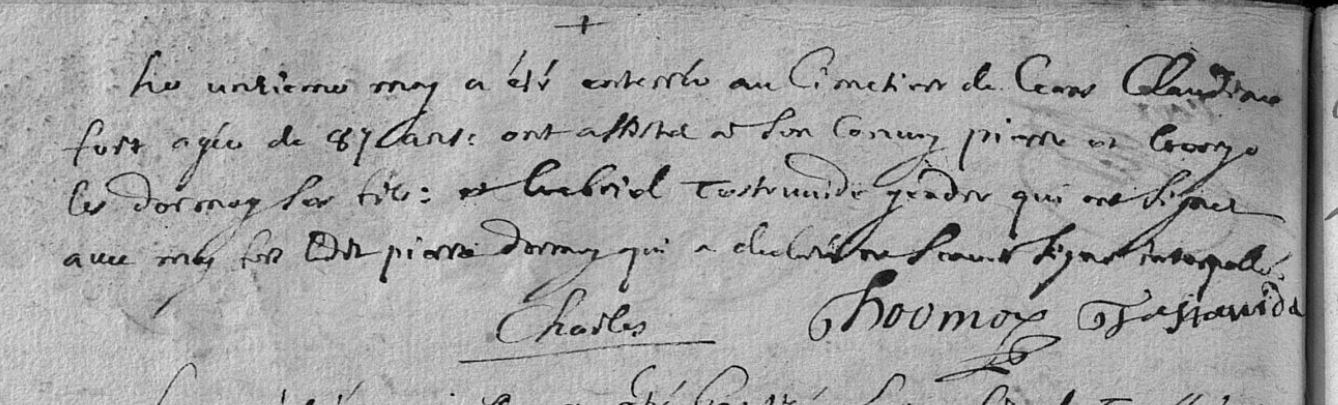 +
Le unzieme may a été enterrée au Cimetiere de Ceans Claudine
fort agée de 87 ans: ont assisté a son Convoy pierre et George
les dormoy ses fils: et Gabriel gendre qui ont signet
avec moy fort ledit pierre dormoy qui a declaré ne scavoir signe interpellé.
Charles